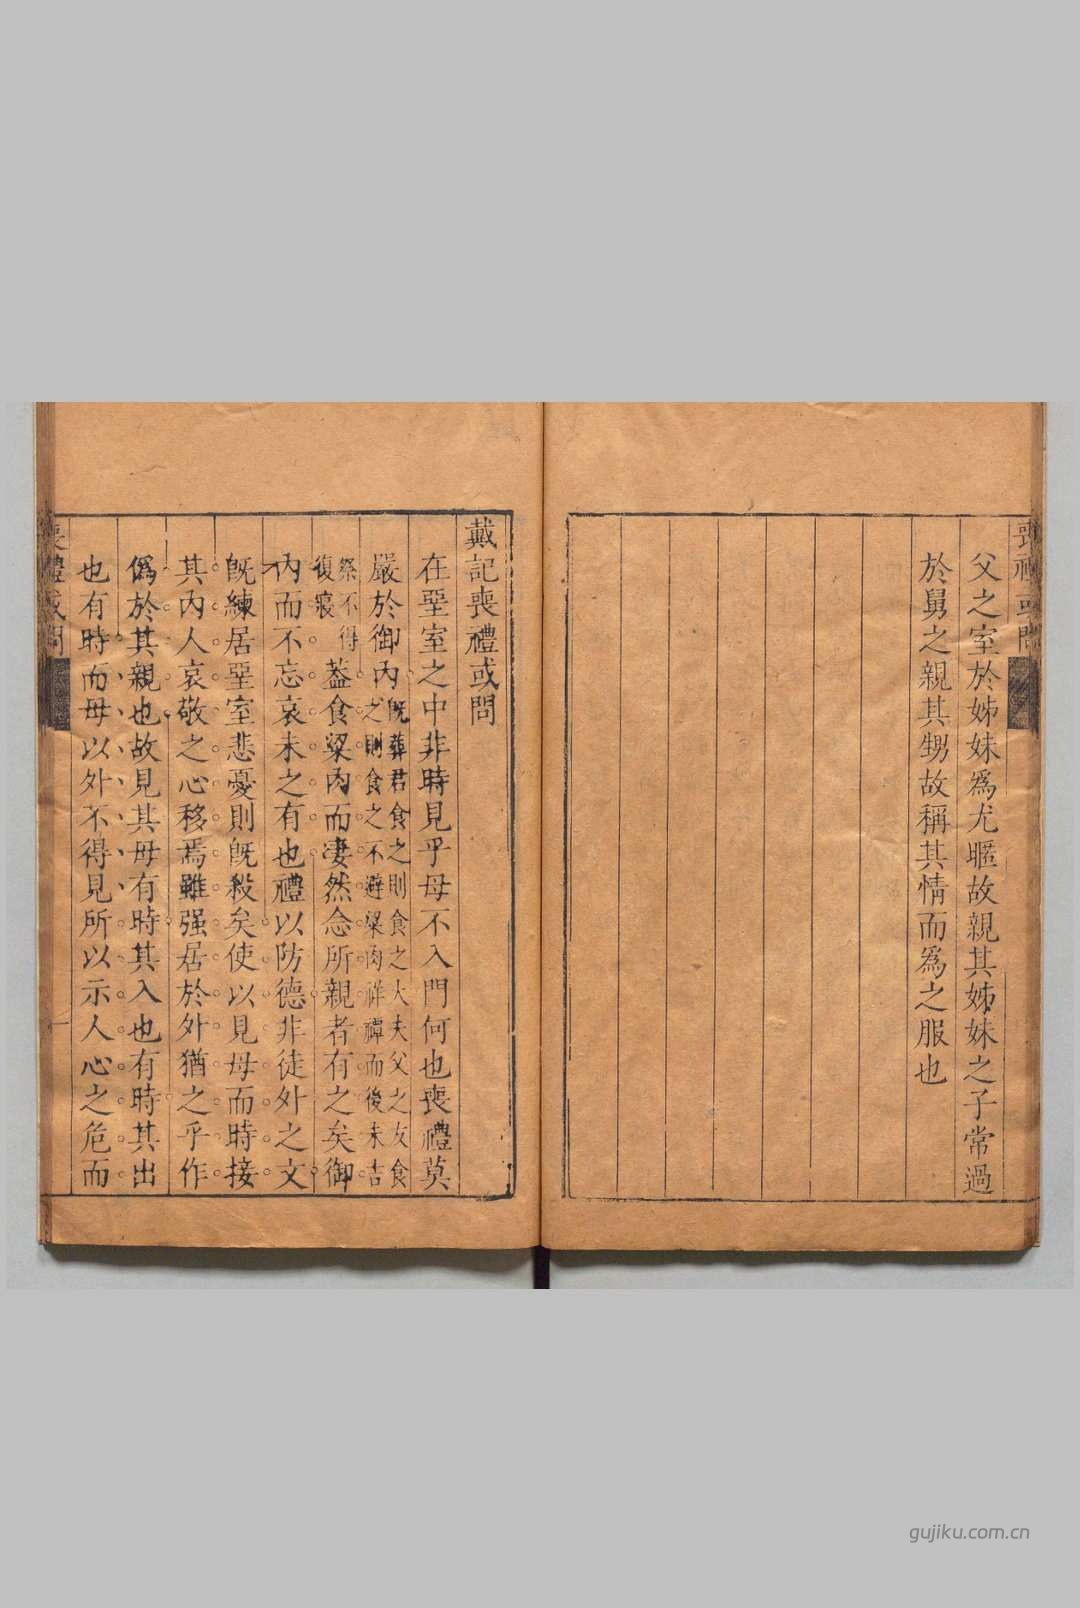 喪禮或問
父之室於姊妹爲尤暱故親其姊妹之子常過
於舅之親其甥故稱其情而爲之服也
戴記喪禮或問
在堊室之中非時見乎母不入門何也喪禮莫
嚴於御內既葬君食之則食之大夫父之友食
之則食之不避粱肉祥禫而後未吉
祭不得
復寢
蓋食粱肉而凄然念所親者有之矣御
內而不忘哀未之有也禮以防德非徒外之文
既練居堊室悲憂則既殺矣使以見母而時接
其內人哀敬之心移焉雖强居於外猶之乎作
僞於其親也故見其母有時其入也有時其出
也有時而母以外不得見所以示人心之危而
喪禮或問
一
gujiku.com.cn